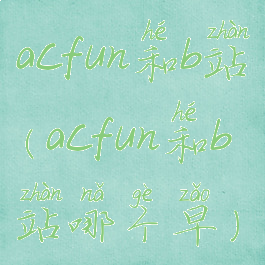 hé zhàn
acfun和b站
hé
(acfun和b
zhàn nǎ gè zǎo
站哪个早)